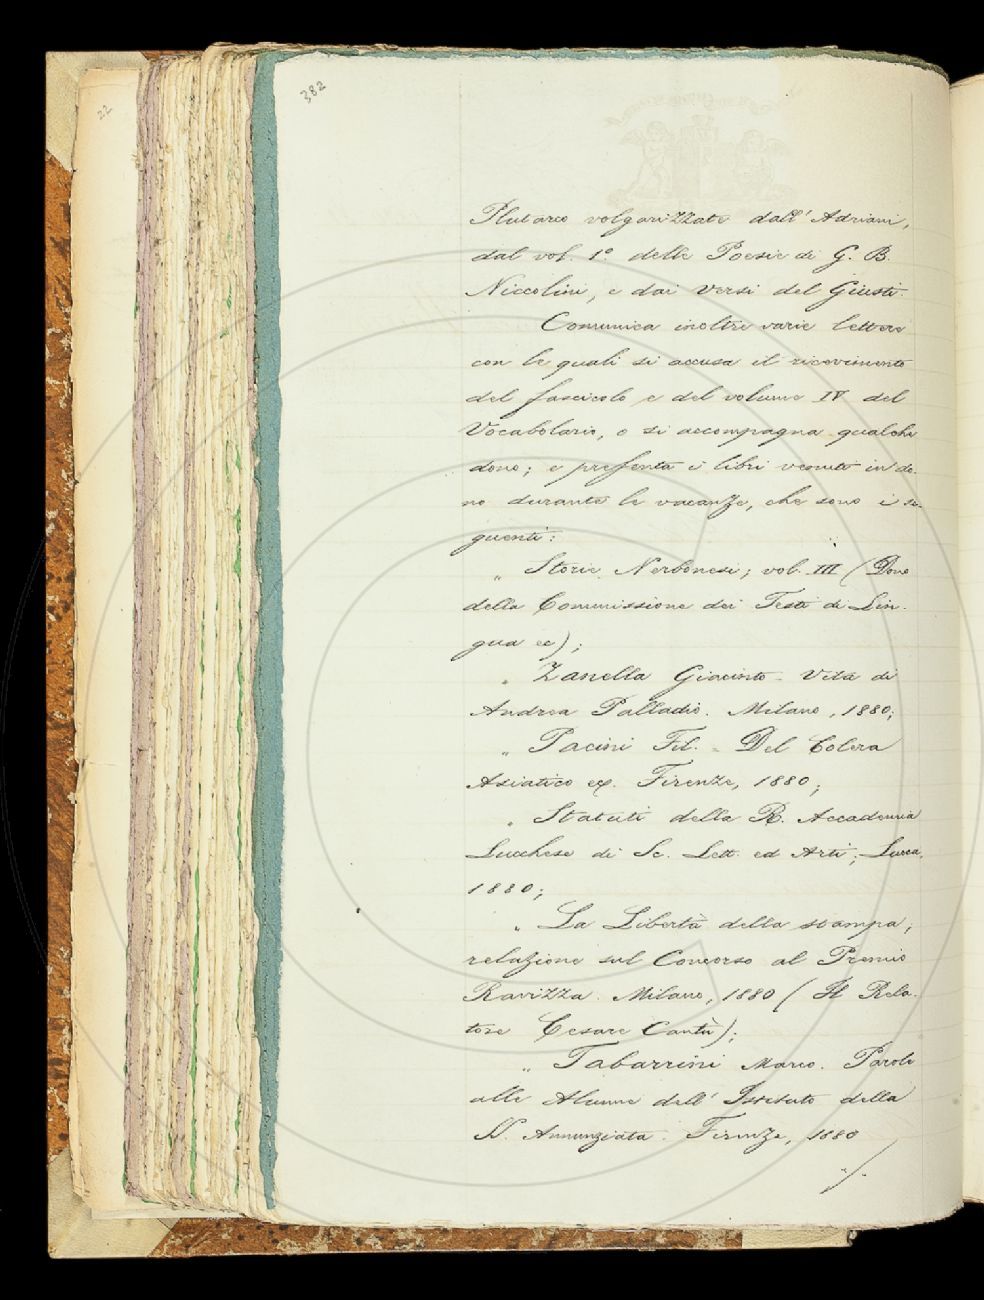 382
22
Plutarco volgarizzato dall' Adriani,
dal vol. 1º. delle Poesie di G. B.
Niccolini, e dai Versi del Giusti.
Comunica inoltre varie lettere
con le quali si accusa il ricevimento
del fascicolo e del volume IV del
Vocabolario, o si accompagna qualche
dono; e presenta i libri venuti in do-
no durante le vacanze, che sono i se-
guenti:
„ Storie Nerbonesi; vol. III (Dono
della Commissione dei Testi di Lin-
gua ec);
„ Zanella Giacinto - Vita di
Andrea Palladio. Milano, 1880;
„ Pacini Fil. - Del Colera
Asiatico ec. Firenze, 1880;
„ Statuti della R. Accademia
Lucchese di Sc. Lett. ed Arti; Lucca,
1880;
„ La Libertà della stampa;
relazione sul Concorso al Premio
Ravizza. Milano, 1880 (Il Rela-
tore Cesare Cantù);
„ Tabarrini Marco. Parole
alle Alunne dell' Istituto della
SS. Annunziata. Firenze, 1880
./.